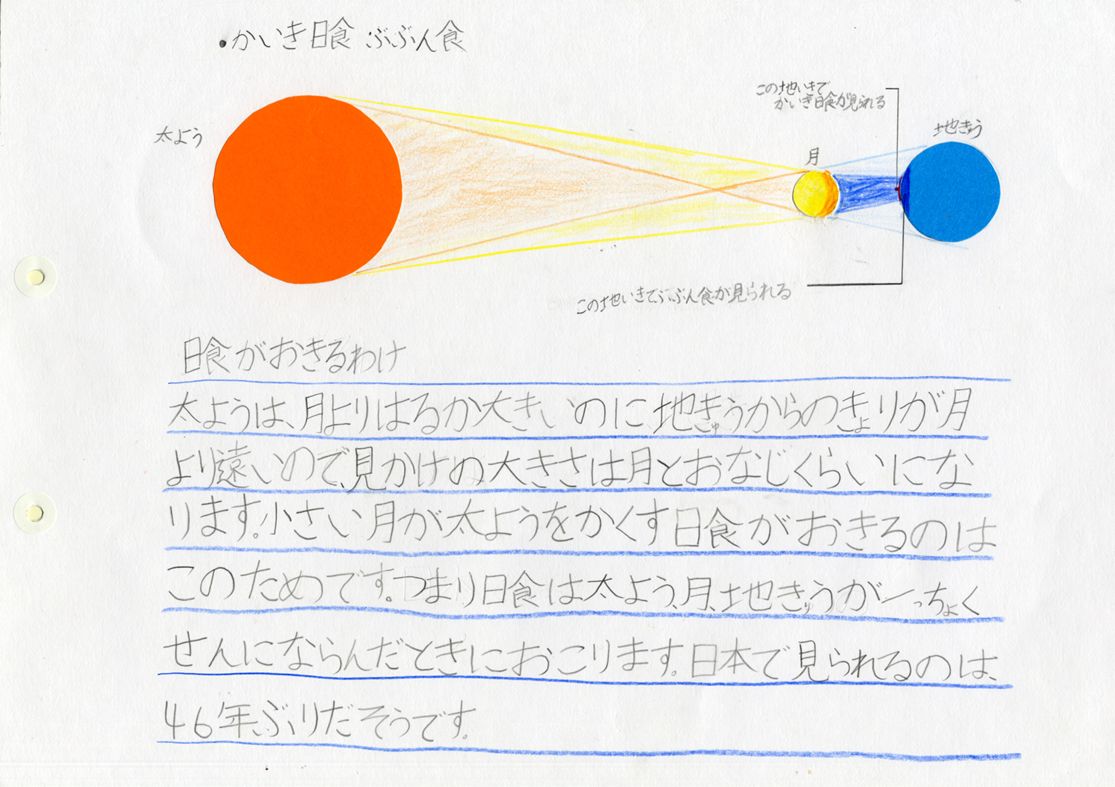 ・かいき日食 ぶぶん食
この地いきで
かいき日食が見られる
太よう
月
地きゅう
この地いきでぶぶん食が見られる
日食がおきるわけ
太ようは、月よりはるか大きいのに地きゅうからのきょりが月
より遠いので、見かけの大きさは月とおなじくらいにな
ります。小さい月が太ようをかくす日食がおきるのは
このためです。つまり日食は太よう、月、地きゅうが一っちょく
せんにならんだときにおこります。日本で見られるのは、
46年ぶりだそうです。